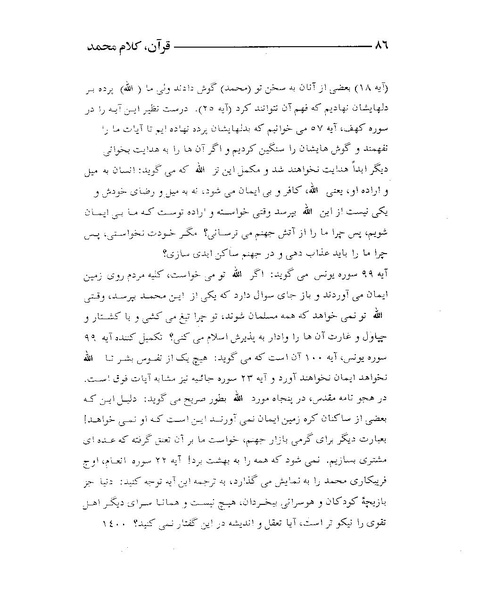 ۸۶ قرآن، کلام محمد
(آیه ۱۸) بعضی از آنان به سخن تو (محمد) گوش دادند ولی ما ( الله) پرده بر
دلهایشان نهادیم که فهم آن نتوانند کرد (آیه ۲۵). درست نظیر این آیه را در
سوره کهف، آیه ۵۷ می خوانیم که بدلهایشان پرده نهاده ایم تا آیات ما را
نفهمند و گوش هایشان را سنگین کردیم و اگر آن ها را به هدایت بخوانی
دیگر ابداً هدایت نخواهند شد و مکمل این تز الله که می گوید: انسان به میل
و اراده او، یعنی الله، کافر و بی ایمان می شود، نه به میل و رضای خودش و
یکی نیست از این الله بپرسد وقتی خواسته و اراده توست که ما بی ایمان
شویم، پس چرا ما را از آتش جهنم می ترسانی؟ مگر خودت نخواستی، پس
چرا ما را باید عذاب دهی و در جهنم ساکن ابدی سازی؟
آیه ۹۹ سوره یونس می گوید: اگر الله تو می خواست، کلیه مردم روی زمین
ایمان می آوردند و باز جای سوال دارد که یکی از این محمد بپرسد، وقتی
الله تو نمی خواهد که همه مسلمان شوند، تو چرا تیغ می کشی و با کشتار و
چپاول و غارت آن ها را وادار به پذیرش اسلام می کنی؟ تکمیل کننده آیه ۹۹
سوره یونس، آیه ۱۰۰ آن است که می گوید: هیچ یک از نفوس بشر تا الله
نخواهد ایمان نخواهند آورد و آیه ۲۳ سوره جاثیه نیز مشابه آیات فوق است.
در هجو نامه مقدس، در پنجاه مورد الله بطور صریح می گوید: دلیل این که
بعضی از ساکنان کره زمین ایمان نمی آورند این است که او نمی خواهد!
بعبارت دیگر برای گرمی بازار جهنم، خواست ما بر آن تعلق گرفته که عده ای
مشتری بسازیم. نمی شود که همه را به بهشت برد! آیه ۲۲ سوره انعام، اوج
فریبکاری محمد را به نمایش می گذارد، به ترجمه این آیه توجه کنید: دنیا جز
بازیچهٔ کودکان و هوسرانی بیخردان، هیچ نیست و همانا سرای دیگر اهل
تقوی را نیکو تر است، آیا تعقل و اندیشه در این گفتار نمی کنید؟ ۱۴۰۰